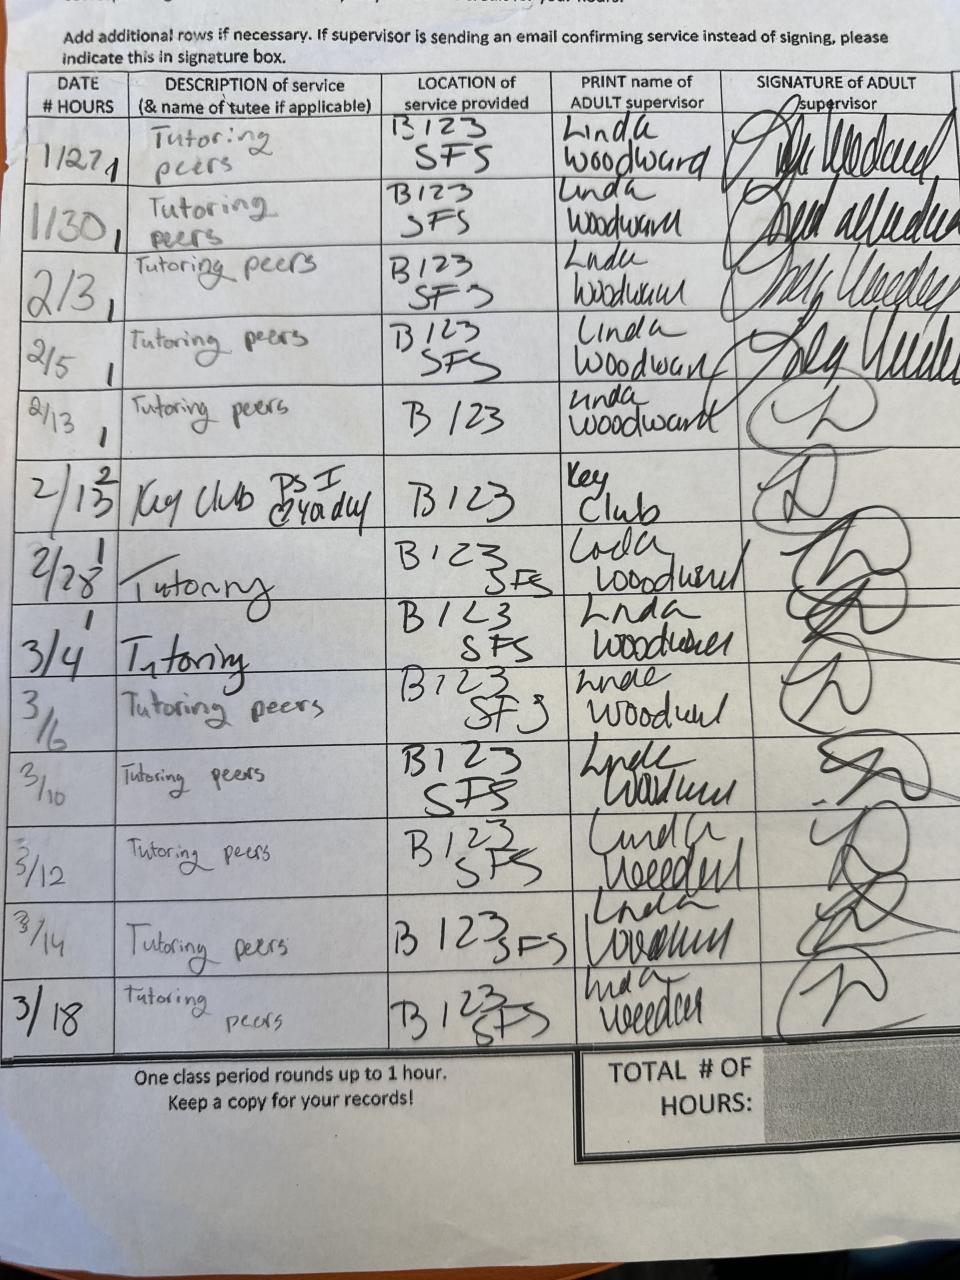 Add additional rows if necessary. If supervisor is sending an email confirming service instead of signing, please
indicate this in signature box.
DATE
# HOURS
DESCRIPTION of service
(& name of tutee if applicable)
LOCATION of
service provided
PRINT name of
ADULT supervisor
SIGNATURE of ADULT
supervisor
1/27 1
Tutoring
peers
B123
SFS
Linda
Woodward
1/30 1
Tutoring
peers
B123
SFS
Linda
Woodward
2/3 1
Tutoring peers
B123
SFS
Linda
Woodward
2/5 1
Tutoring peers
B123
SFS
Linda
Woodward
2/13 1
Tutoring peers
B 123
Linda
Woodward
2/13 2
Key Club
B 123
Key
Club
2/28 1
Tutoring
B 123
SFS
Linda
Woodward
3/4 1
Tutoring
B 123
SFS
Linda
Woodward
3/6
Tutoring peers
B 123
SFS
Linda
Woodward
3/10
Tutoring peers
B123
SFS
Linda
Woodward
3/12
Tutoring peers
B 123
SFS
Linda
Woodward
3/14
Tutoring peers
B 123 SFS
Linda
Woodward
3/18
Tutoring
peers
B 123
SFS
Linda
Woodward
One class period rounds up to 1 hour.
Keep a copy for your records!
TOTAL # OF
HOURS: